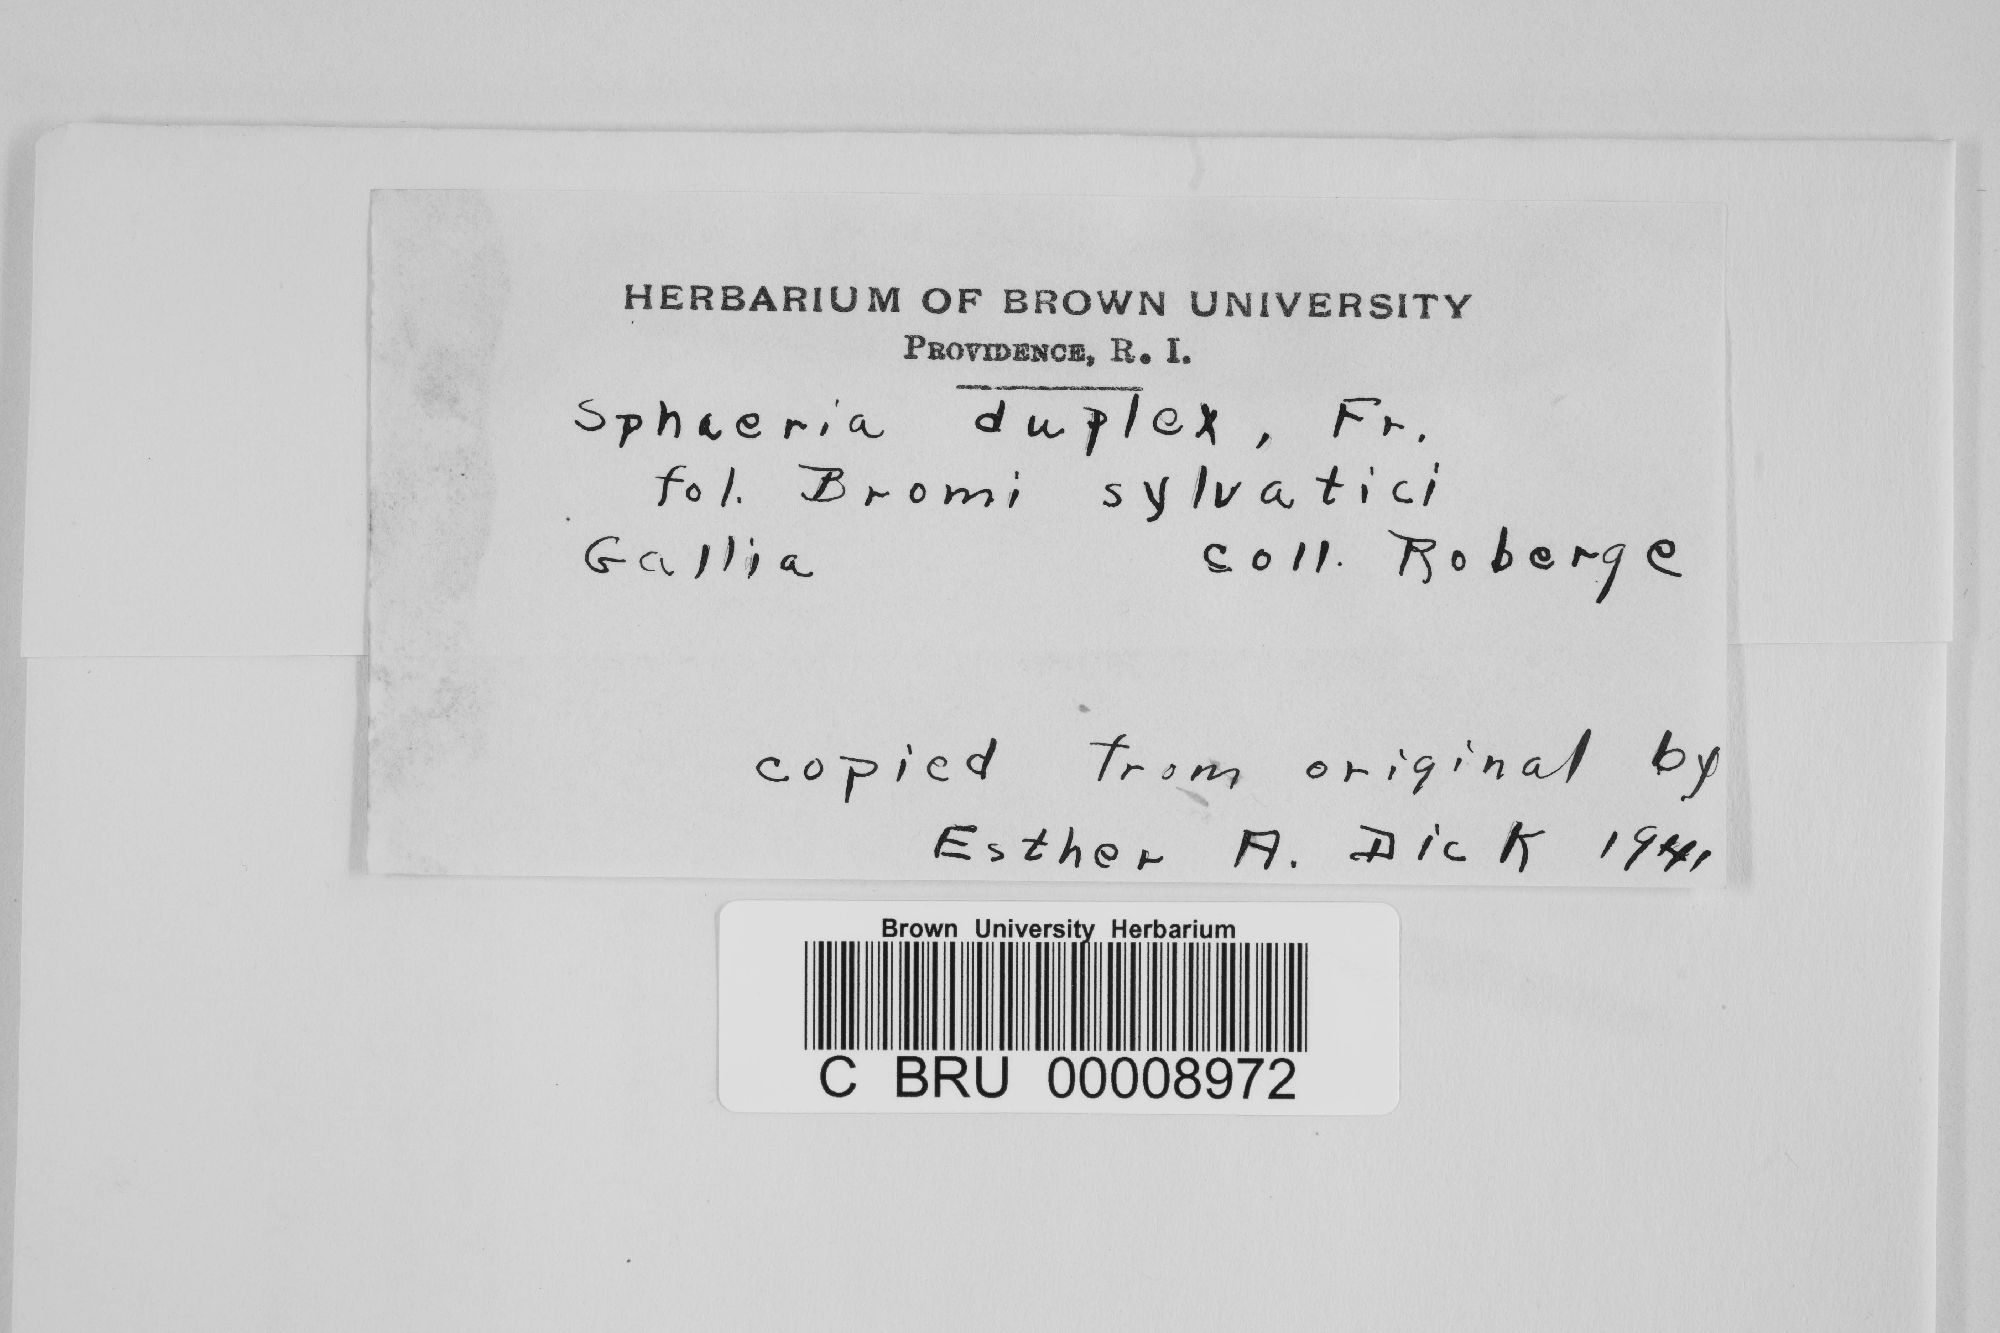 HERBARIUM OF BROWN UNIVERSITY
PROVIDENCE, R. I.
Sphaeria duplex, Fr.
fol. Bromi sylvatici
Gallia coll. Roberge
copied from original by
Esther A. Dick 1941
Brown University Herbarium
C BRU 00008972